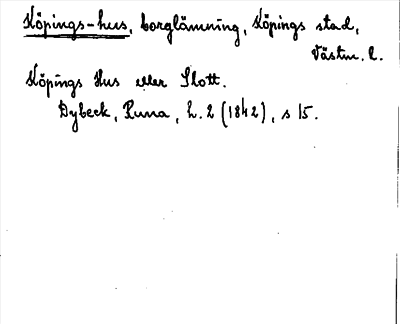 Köpings-hus, borglämning, Köpings stad,
Västm. l.
Köpings Hus eller Slott.
Dybeck, Runa, h. 2 (1842), s 15.